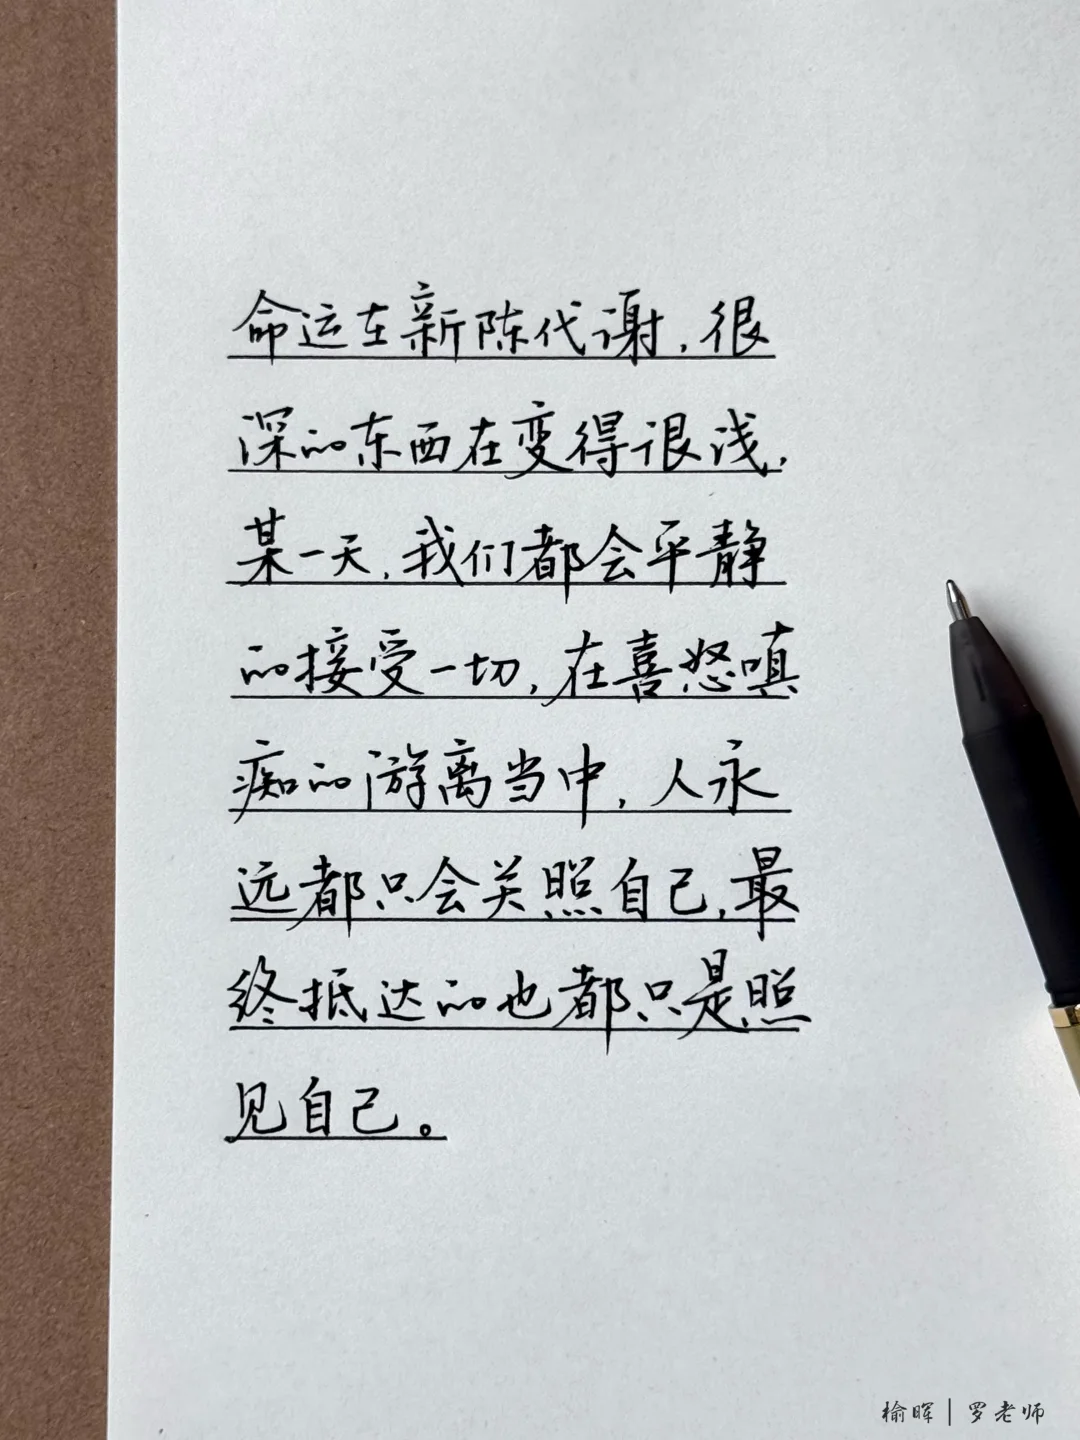 命运在新陈代谢,很
深的东西在变得很浅,
某一天,我们都会平静
的接受一切,在喜怒嗔
痴的游离当中,人永
远都只会关照自己,最
终抵达的也都只是照
见自己。
榆晖|罗老师